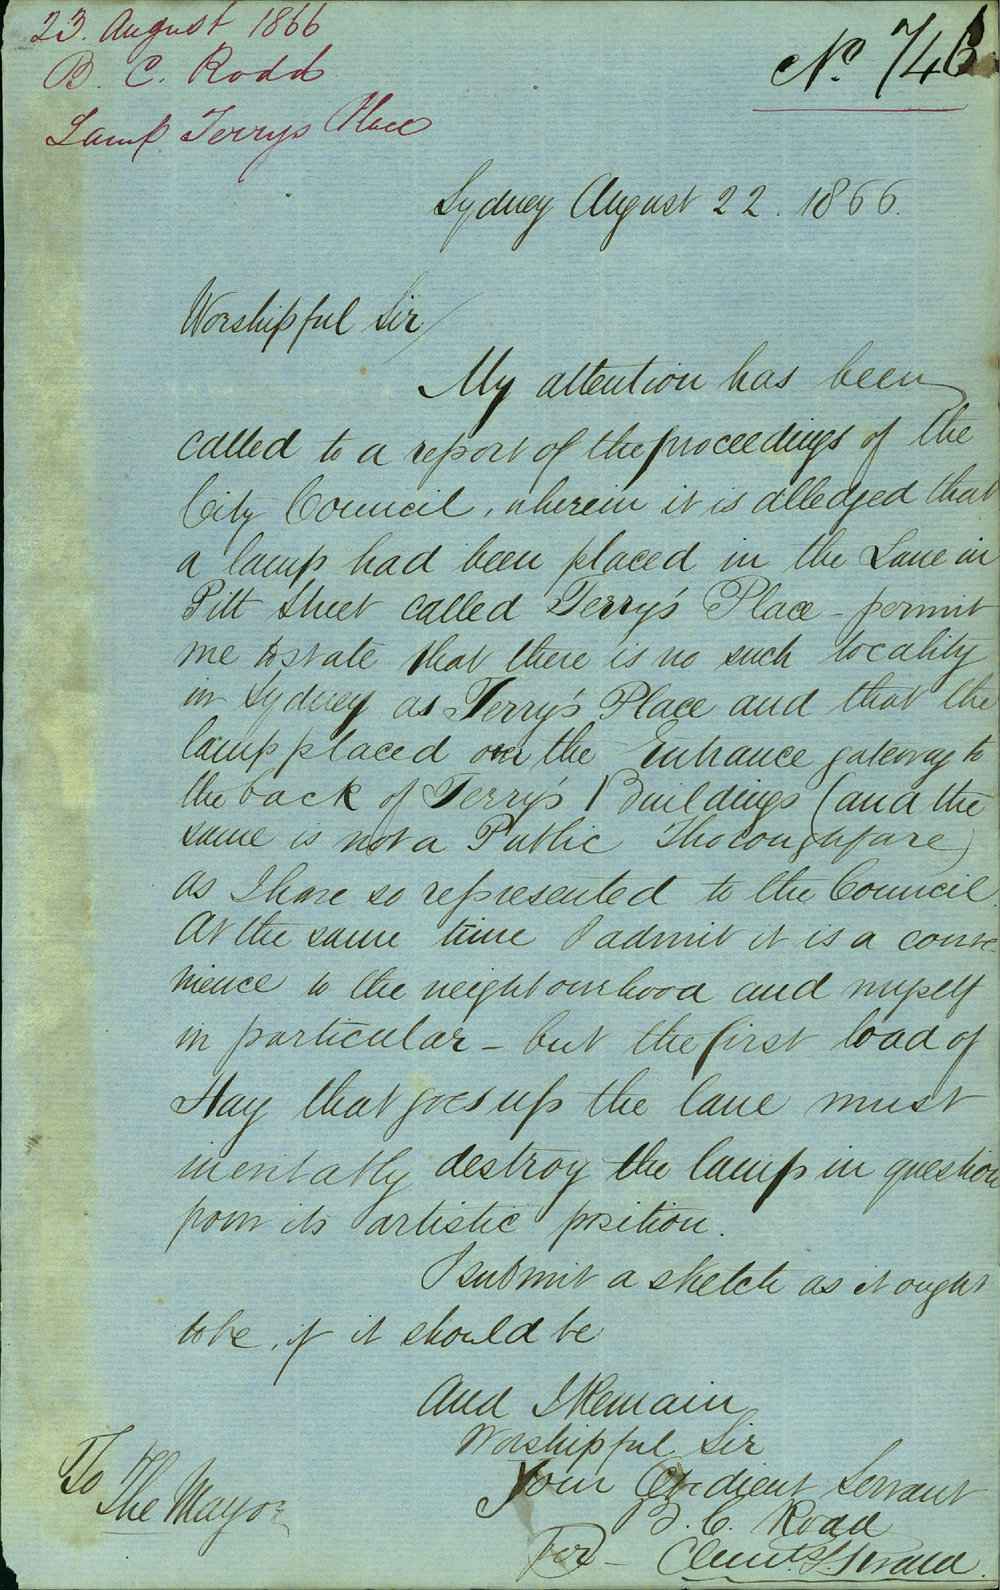 23. August 1866
B. C. Rodd
Lamp Terrys Place
No. 746
Sydney August 22. 1866.
Worshipful Sir/
My attention has been
called to a report of the proceedings of the
City Council, wherein it is alledged that
a lamp had been placed in the Lane in
Pitt Street called Terry's Place - permit
me to state that there is no such locality
in Sydney as Terry's Place and that the
lamp placed on the Entrance gateway to
the back of Terry's Buildings (and the
same is not a Public Thoroughfare)
as I have so represented to the Council.
At the same time I admit it is a conve
nience to the neighbourhood and myself
in particular - but the first load of
Hay that goes up the lane must
inevitably destroy the lamp in question
from its artistic position.
I submit a sketch as it ought
to be, if it should be
And I Remain
Worshipful Sir
Your Obedient Servant
B. C. Rodd
For -
To
The Mayor